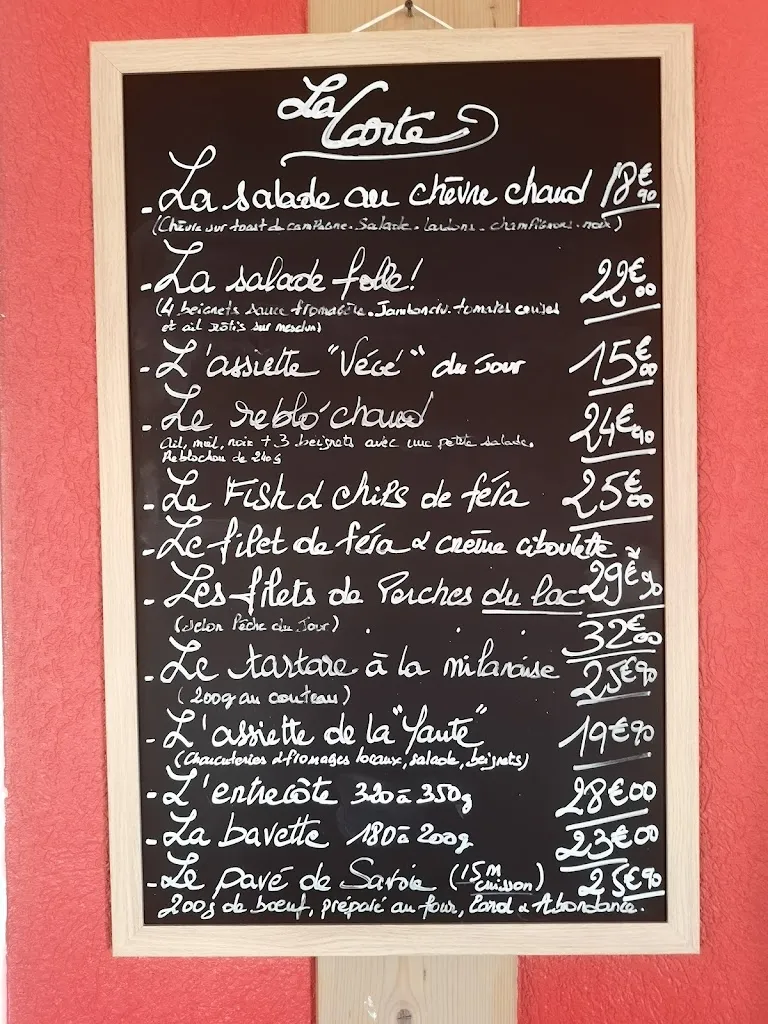 La Carte
- La salade au chèvre chaud 18€90
(Chèvre sur toast de campagne. Salade. lardons. champignons. noix)
- La salade folle! 22€00
(4 beignets sauce fromagère. Jambon cru. tomates cerises
et ail rôtis sur mesclun)
- L'assiette "Végé" du Jour 15€00
- Le reblo'chaud 24€90
Ail, miel, noix + 3 beignets avec une petite salade.
Reblochon de 240g
- Le Fish & chips de féra 25€00
- Le filet de féra & crème ciboulette
29€90
- Les filets de Perches du lac
(selon Pêche du Jour) 32€00
- Le tartare à la milanaise 25€90
(200g au couteau)
- L'assiette de la "Yaute" 19€90
(Charcuteries & fromages locaux, salade, beignets)
- L'entrecôte 320 à 350g 28€00
- La bavette 180 à 200g 23€00
- Le pavé de Savoie (15M cuisson) 25€90
200g de bœuf, préparé au four, Lard & Abondance.